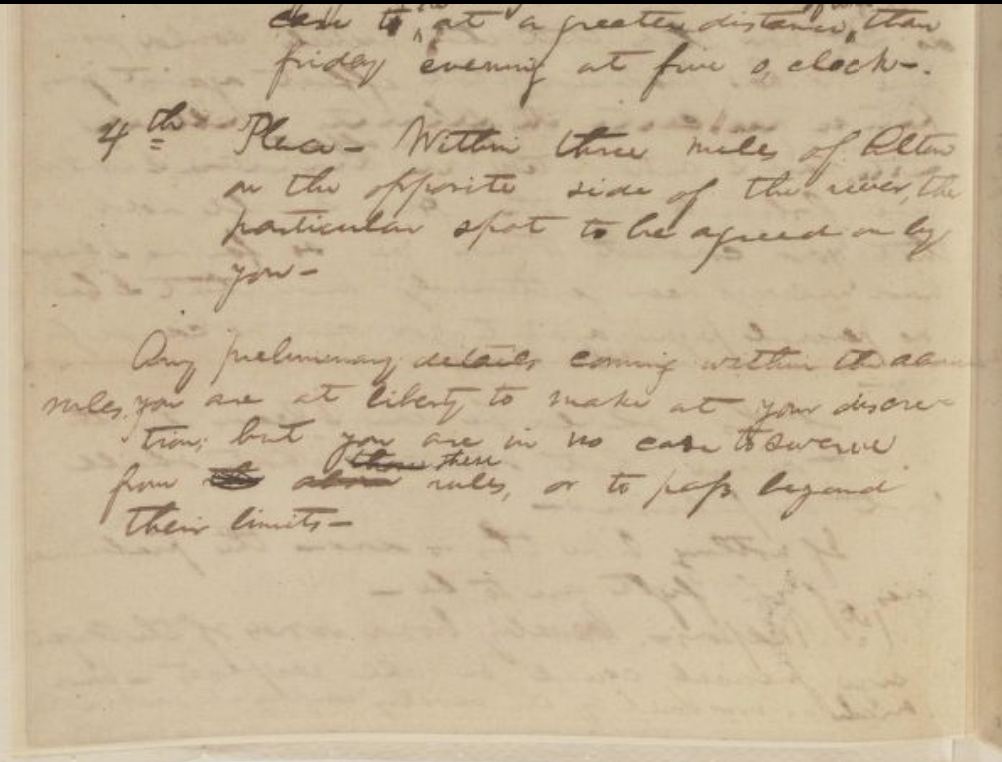 case to be at a greater distance of time than
friday evening at five o,clock-.
4th Place- Within three miles of Alton
on the opposite side of the river, the
particular spot to be agreed on by
you-
Any preliminary details coming within the above
rules, you are at liberty to make at your discre-
tion; but you are in no case to swerve
from these rules, or to pass beyond
their limits-